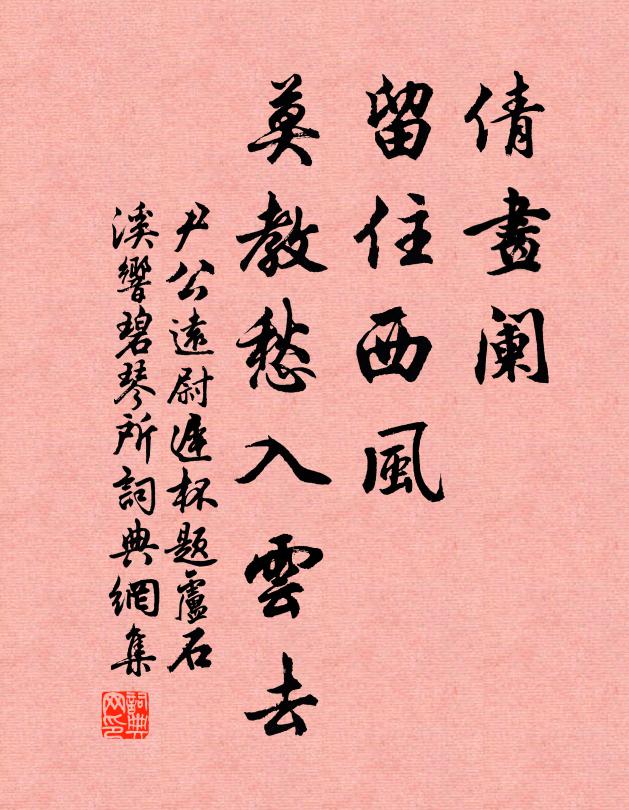 倩畫闌
留住西風
莫教愁入雲去
尹公遠尉遲杯題盧石
溪響碧琴所詞典網集
詞典
网印